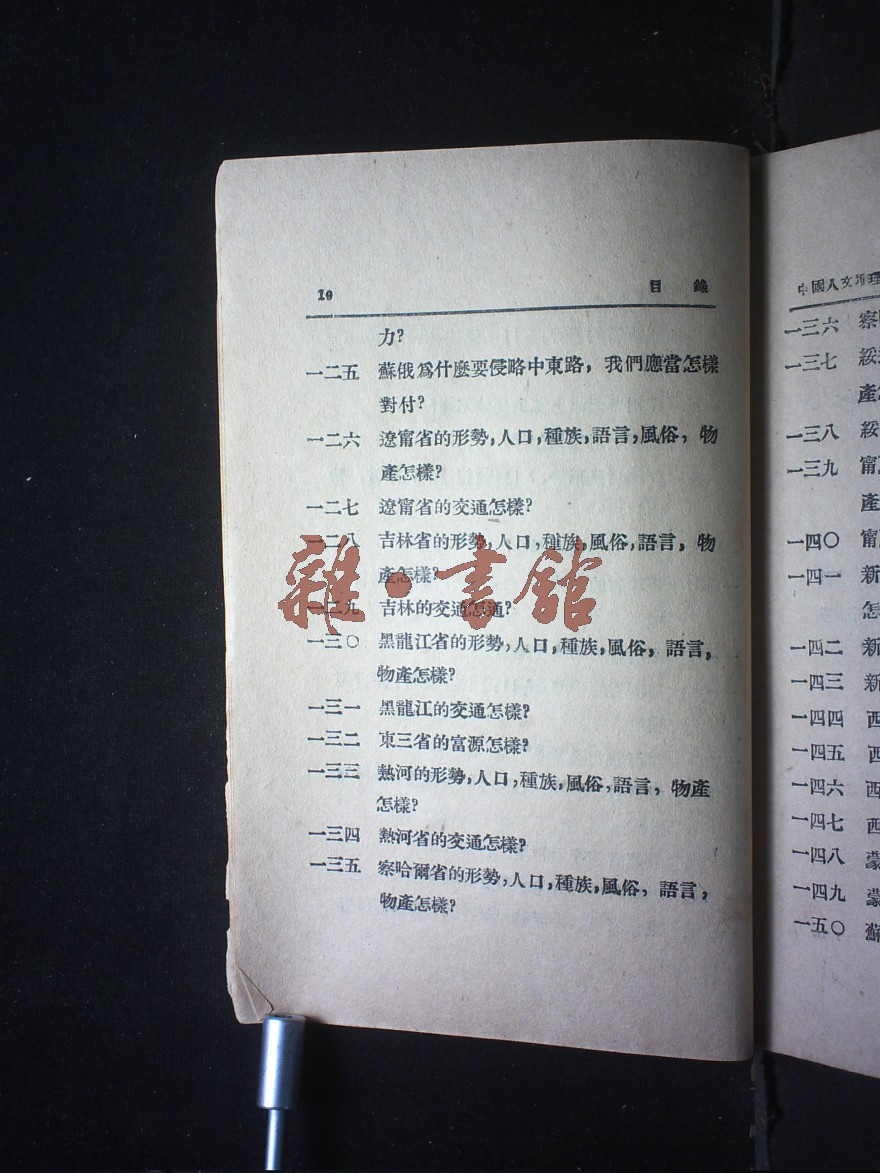 10 目錄
力?
一二五 蘇俄爲什麽要侵略中東路，我們應當怎樣
對付?
一二六 遼甯省的形勢，人口，種族，語言，風俗，物
產怎樣?
一二七 遼甯省的交通怎樣?
一二八 吉林省的形勢，人口，種族，風俗，語言，物
產怎樣?
一二九 吉林的交通怎通?
一三〇 黑龍江省的形勢，人口，種族，風俗，語言，
物產怎樣?
一三一 黑龍江的交通怎樣?
一三二 東三省的富源怎樣?
一三三 熱河的形勢，人口，種族，風俗，語言，物產
怎樣?
一三四 熱河省的交通怎樣?
一三五 察哈爾省的形勢，人口，種族，風俗，語言，
物產怎樣?
雜·書館
中國人文地理
一三六 察
一三七 綏
產
一三八 綏
一三九 甯
產
一四〇 甯
一四一 新
怎
一四二 新
一四三 新
一四四 西
一四五 西
一四六 西
一四七 西
一四八 蒙
一四九 蒙
一五〇 蘇